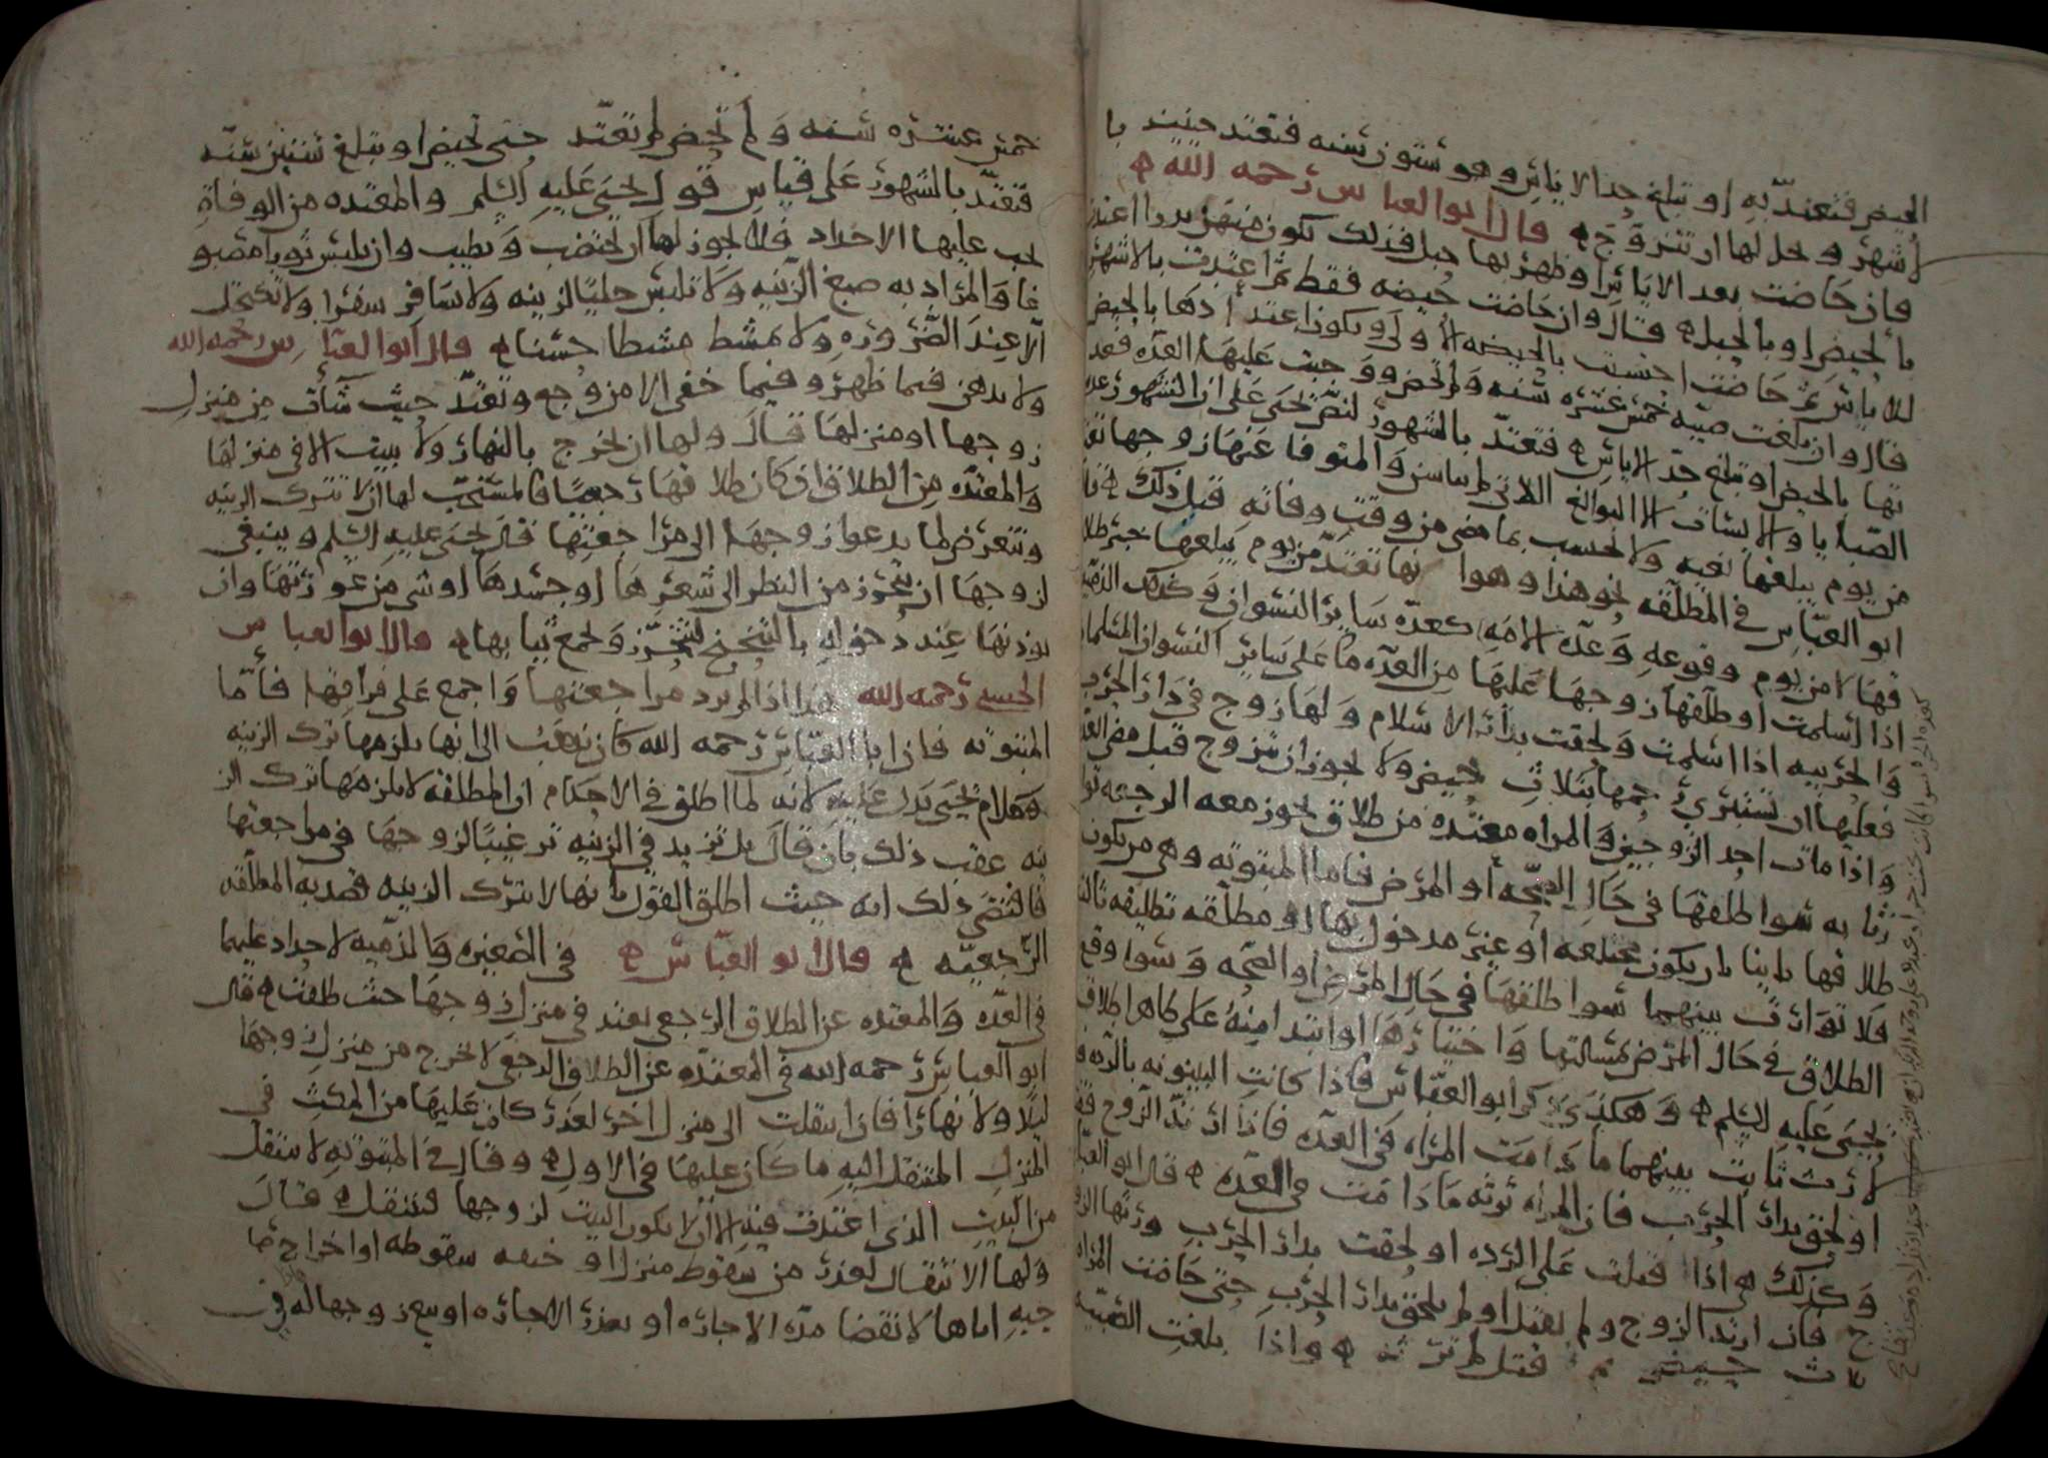 الحيض فتعتدّ به او تبلغ حد الاياس وهو ستون سنه فتعتد حينيذ با
لاشهر وحل لها ان تتزوج ه قال ابو العباس رحمه الله ه
فان حاضت بعد الاياس او ظهر بها حبل فذلك يكون اعتدا
بالحيض او بالحبل ه قال وان حاضت حيضه فقط ثم اعتدت بالاشهر
للاياس ثم حاضت احتسبت بالحيضه الاولى ويكون اعتدادها بالحيض
قال وان بلغت صبيه خمس عشره سنه ولم تحض ووجبت عليها العده فعد
تها بالحيض او تبلغ حد الاياس ه فتعتدّ بالشهور لنصّ يحيى على ان الشهور عده
الصبايا والايسات الا البوالغ اللاتي لم ياسن والمتوفا عنها زوجها تعتد
من يوم يبلغها نعيه ولا تحتسب بما مضى من وقت وفاته قبل ذلك ه قال
ابو العبّاس في المطلّقه نحو هذا وهو انها تعتدّ من يوم يبلغها خبر طلا
قها لا من يوم وقوعه وعدّه الامه كعدّه ساير النسوان وكذلك الذميه
اذا اسلمت او طلّقها زوجها عليها من العدّه ما على ساير النسوان المسلمات
والحربيه اذا اسلمت ولحقت بدار الاسلام ولها زوج في دار الحرب
فعليها ان تستبرئ رحمها بثلاث حيض ولا يجوز ان تتزوج قبل مضي العده
واذا مات احد الزوجين والمراه معتده من طلاق يجوز معه الرجعه توا
رثا به سوا طلقها في حال الصحّه او المرض فاما المبتوته وهي من يكون
طلاقها باينا بان يكون مختلعه او غير مدخول بها او مطلّقه تطليقه ثالثه
فلا توارث بينهما سوا طلقها في حال المرض او الصحّه وسوا وقع
الطلاق في حال المرض بمسالتها واختيارها او ابتدا منه على ظاهر اطلاق
يحيى عليه السلم ه وهكذى ذكر ابو العبّاس فاذا كانت البينونه بالرده
لارث ثابت بينهما ما دامت المراه في العدّه فاذا ارتدّ الزوج
او لحق بدار الحرب فان المراه ترثه ما دامت في العدّه ه قال ابو العباس
وكذلك ه اذا قتلت على الردّه او لحقت بدار الحرب ورثها الزو
ج فان ارتد الزوج ولم يقتل او لم يلحق بدار الحرب حتى حاضت المراه
ثلاث حيض ثم قتل لم ترثه ه واذا بلغت الصبيّه
خمس عشره سنه ولم تحض لم تعتد حتى تحيض او تبلغ ستين سنه
فتعتدّ بالشهور على قياس قول يحيى عليه السلم والمعتده من الوفاة
يجب عليها الاحداد فلا يجوز لها ان تختضب وتطيب وان تلبس ثوبا مصبو
غا والمراد به صبغ الزينه ولا تلبس حليّا لزينه ولا تسافر سفرا ولا تكتحل
الا عند الضّروره ولا تمشط مشطا حسنا ه قال ابو العبّاس رحمه الله
ولا تدهن فيما ظهر وفيما خفي الا من وجع وتعتدّ حيث شآت من منزل
زوجها او منزلها قال ولها ان تخرج بالنهار ولا تبيت الا في منزلها
والمعتدّه من الطلاق ان كان طلاقها رجعيا فالمستحبّ لها ان لا تترك الزينه
وتتعرض لما يدعوا زوجها الى مراجعتها قال يحيى عليه السلم وينبغي
لزوجها ان يتحرز من النظر الى شعرها او جسدها او شي من عورتها وان
يوذنها عند دخوله بالتنحنح لتتحرّز وتجمع ثيابها ه قال ابو العباس
الحسني رحمه الله هذا اذا لم يرد مراجعتها واجمع على فراقها فأمّا
المبتوته فان ابا العبّاس رحمه الله كان يذهب الى انها يلزمها ترك الزينه
وكلام يحيى يدل عليه لانه لما اطلق في الاحكام ان المطلقه لا يلزمها ترك الز
ينه عقب ذلك بان قال بل تزيد في الزينه ترغيبًا لزوجها في مراجعتها
فاقتضى ذلك انه حيث اطلق القول بانها لا تترك الزينه قصد به المطلّقه
الرّجعيّه ه قال ابو العبّاس ه في الصغيره والذّميه لا حداد عليهما
في العدّه والمعتده عن الطلاق الرّجعي تعتد في منزل زوجها حيث طلقت ه قال
ابو العباس رحمه الله في المعتدّه عن الطلاق الرجعي لا تخرج من منزل زوجها
ليلا ولا نهارا فان انتقلت الى منزل اخر لعذر كان عليها من المكث في
المنزل المنتقل اليه ما كان عليها في الاول ه وقال في المبتوته لا تنتقل
من البيت الذي اعتدت فيه الا ان لا يكون البيت لزوجها فتنتقل ه قال
ولها الانتقال لعذر من سقوط منزل او خيفه سقوطه او اخراج صا
حبه اياها لانقضا مدّه الاجاره او تعذر الاجاره او بيع زوجها له في